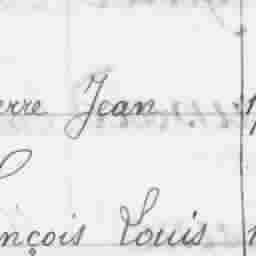 erre Jean
nçois Louis